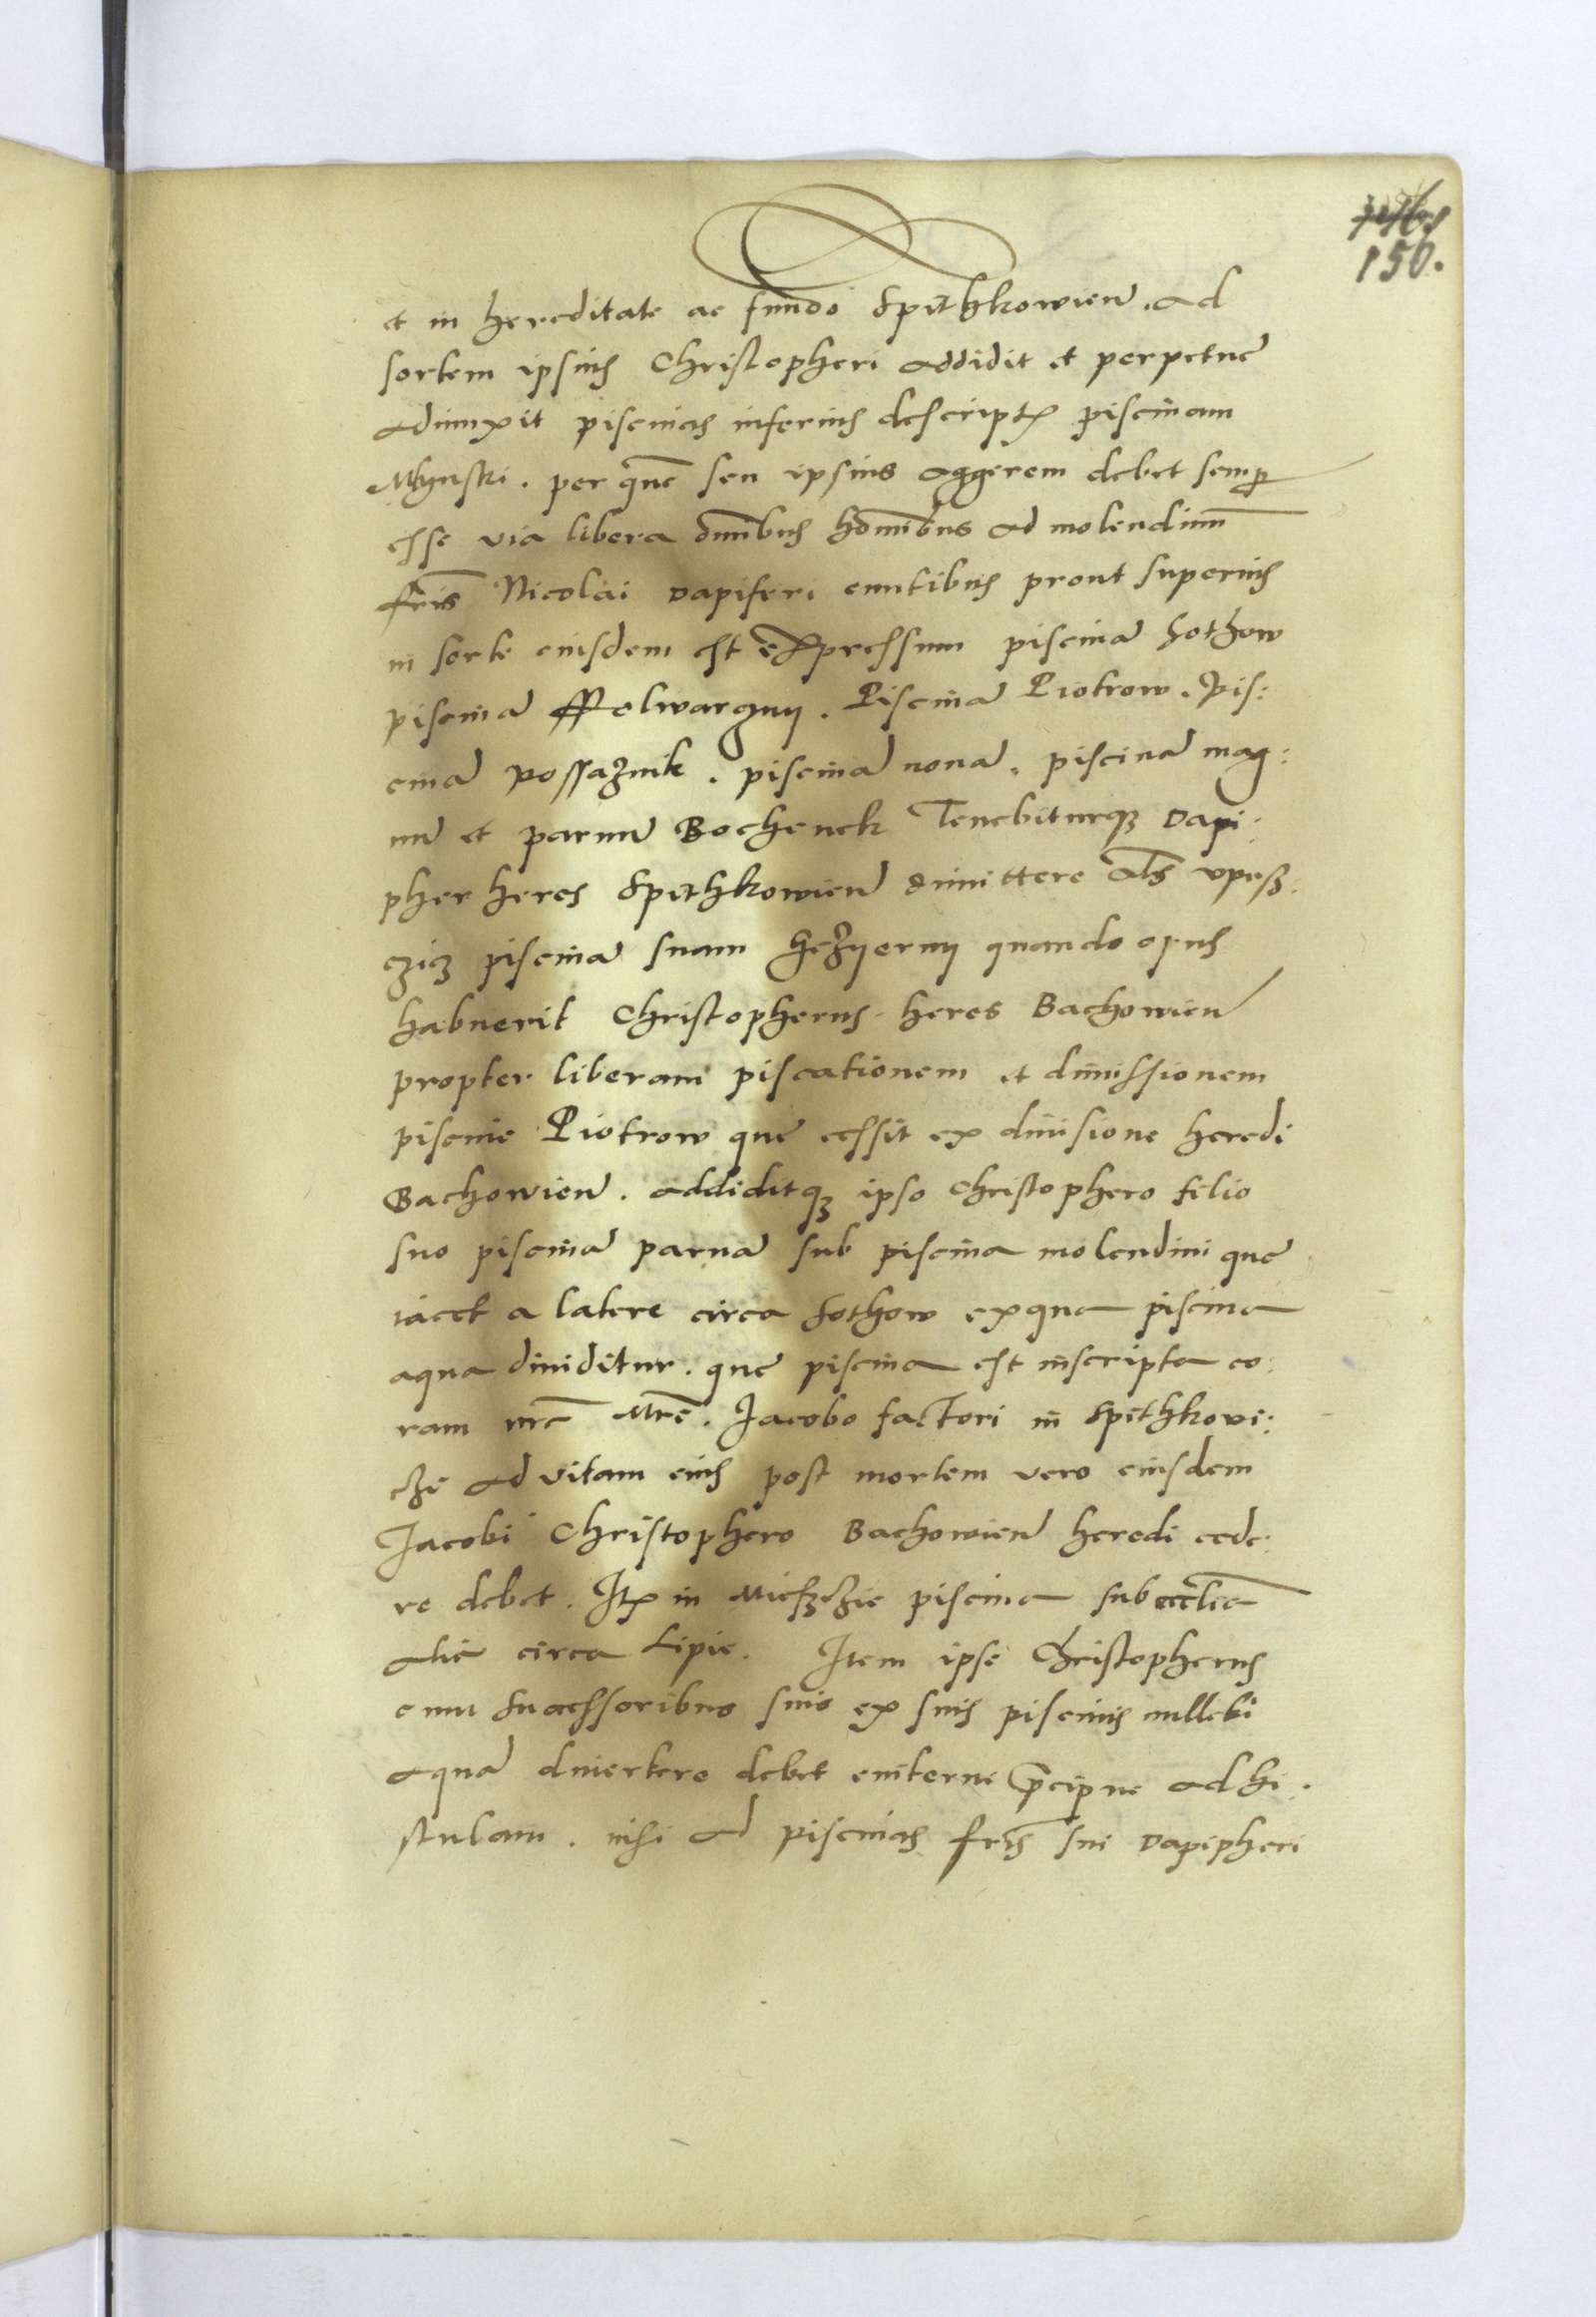 150.
et in hereditate ac fundo Spithkowien̄. ad
sortem ipsius Christopheri addidit et perpetue
adiunxit piscinas inferius descript piscinam
Mlynski. per quē seu ipsius aggerem debet semp
esse via libera om̄ibus hōmibus ad molendinū
fr̄is Nicolai dapiferi euntibus prout superius
in sorte eiusdem est expressum piscinā Sothow
piscinā ffolwarguy. Piscinā Piotrow. Pis:
cinā possaznik. piscinā nouā. piscinā mag:
nū et paruū Bochenek Tenebiturq̨ Dapi:
pher heres Spithkowien̄ dimittere al̄s vpusz:
czicz piscinā suam Gezyerny quando opus
habuerit Christopherus heres Bachowien̄
propter liberam piscationem et dimissionem
piscine Piotrow que cessit ex diuisione heredi
Bachowien̄. addiditq̨ ipso Christophero filio
suo piscinā paruā sub piscina molendini que
iacet a latere circa Sothow ex qua piscina
aqua diuiditur. que piscina est inscripta co:
ram me Mr̄e. Jacobo factori in Spithkovi:
cze ad vitam eius post mortem vero eiusdem
Jacobi Christophero Bachowien̄ heredi cede:
re debet. It in Miesczcze piscina sub eccl̄ia
alia circa Lipie. Item ipse Christopherus
cum Suacssoribus suis ex suis piscinis nullibi
aquā diuertere debet eviterne p̄cipue ad hi:
stulam. nisi ad piscinas fr̄is sui dapipheri